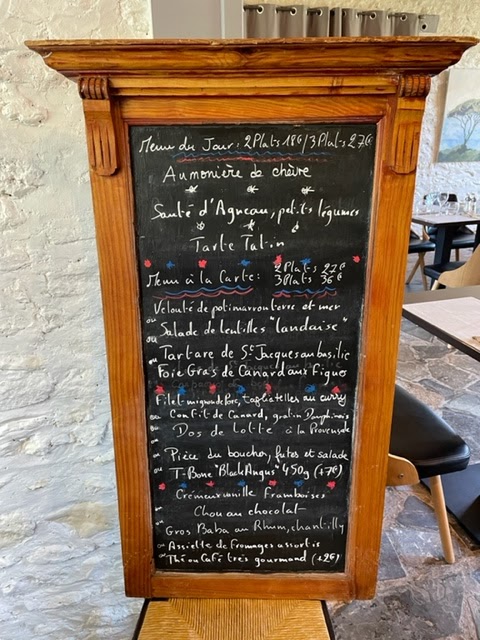 Menu du Jour: 2 Plats 18€/3 Plats 27€
Aumonière de chèvre
Sauté d'Agneau, petits légumes
Tarte Tatin
Menu à la Carte: 2 Plats 27€
3 Plats 36€
Velouté de potimarron terre et mer
ou Salade de lentilles "landaise"
ou Tartare de St Jacques au basilic
Foie Gras de Canard aux figues
Filet-mignon de Porc, tagliatelles au curry
ou Confit de Canard, gratin Dauphinois
ou Dos de Lotte à la Provençale
ou Pièce du boucher, frites et salade
ou T-Bone "Black Angus" 450g (+7€)
Crémeux vanille framboises
ou Chou au chocolat
ou Gros Baba au Rhum, chantilly
ou Assiette de fromages assortis
ou Thé ou Café très gourmand (+2€)